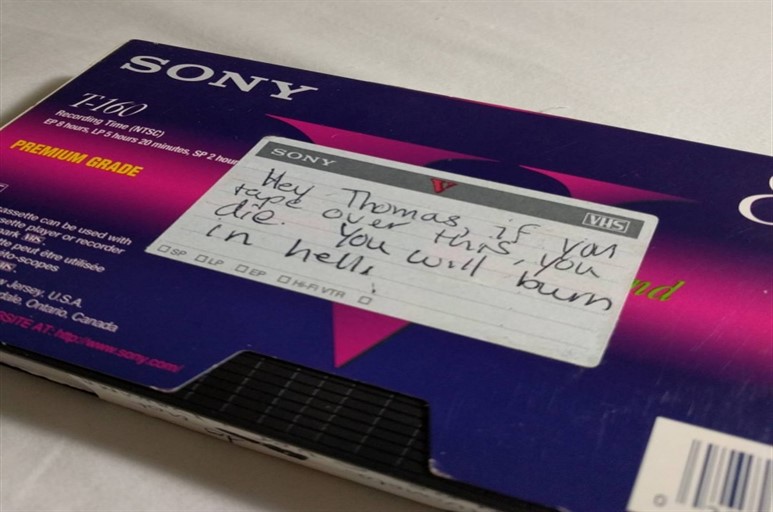 SONY
T-160
Recording Time (NTSC)
EP 8 hours, LP 5 hours 20 minutes, SP 2 hou
PREMIUM GRADE
SONY
V
VHS
Hey Thomas, if you
tape over this, you
die. You will burn
in hell.
SP LP EP HI-FI VTR
nd
8
assette can be used with
sette player or recorder
ark VHS.
te peut être utilisée
éto-scopes
HS.
w Jersey, U.S.A.
dale, Ontario, Canada
SITE AT: http://www.sony.com/
0